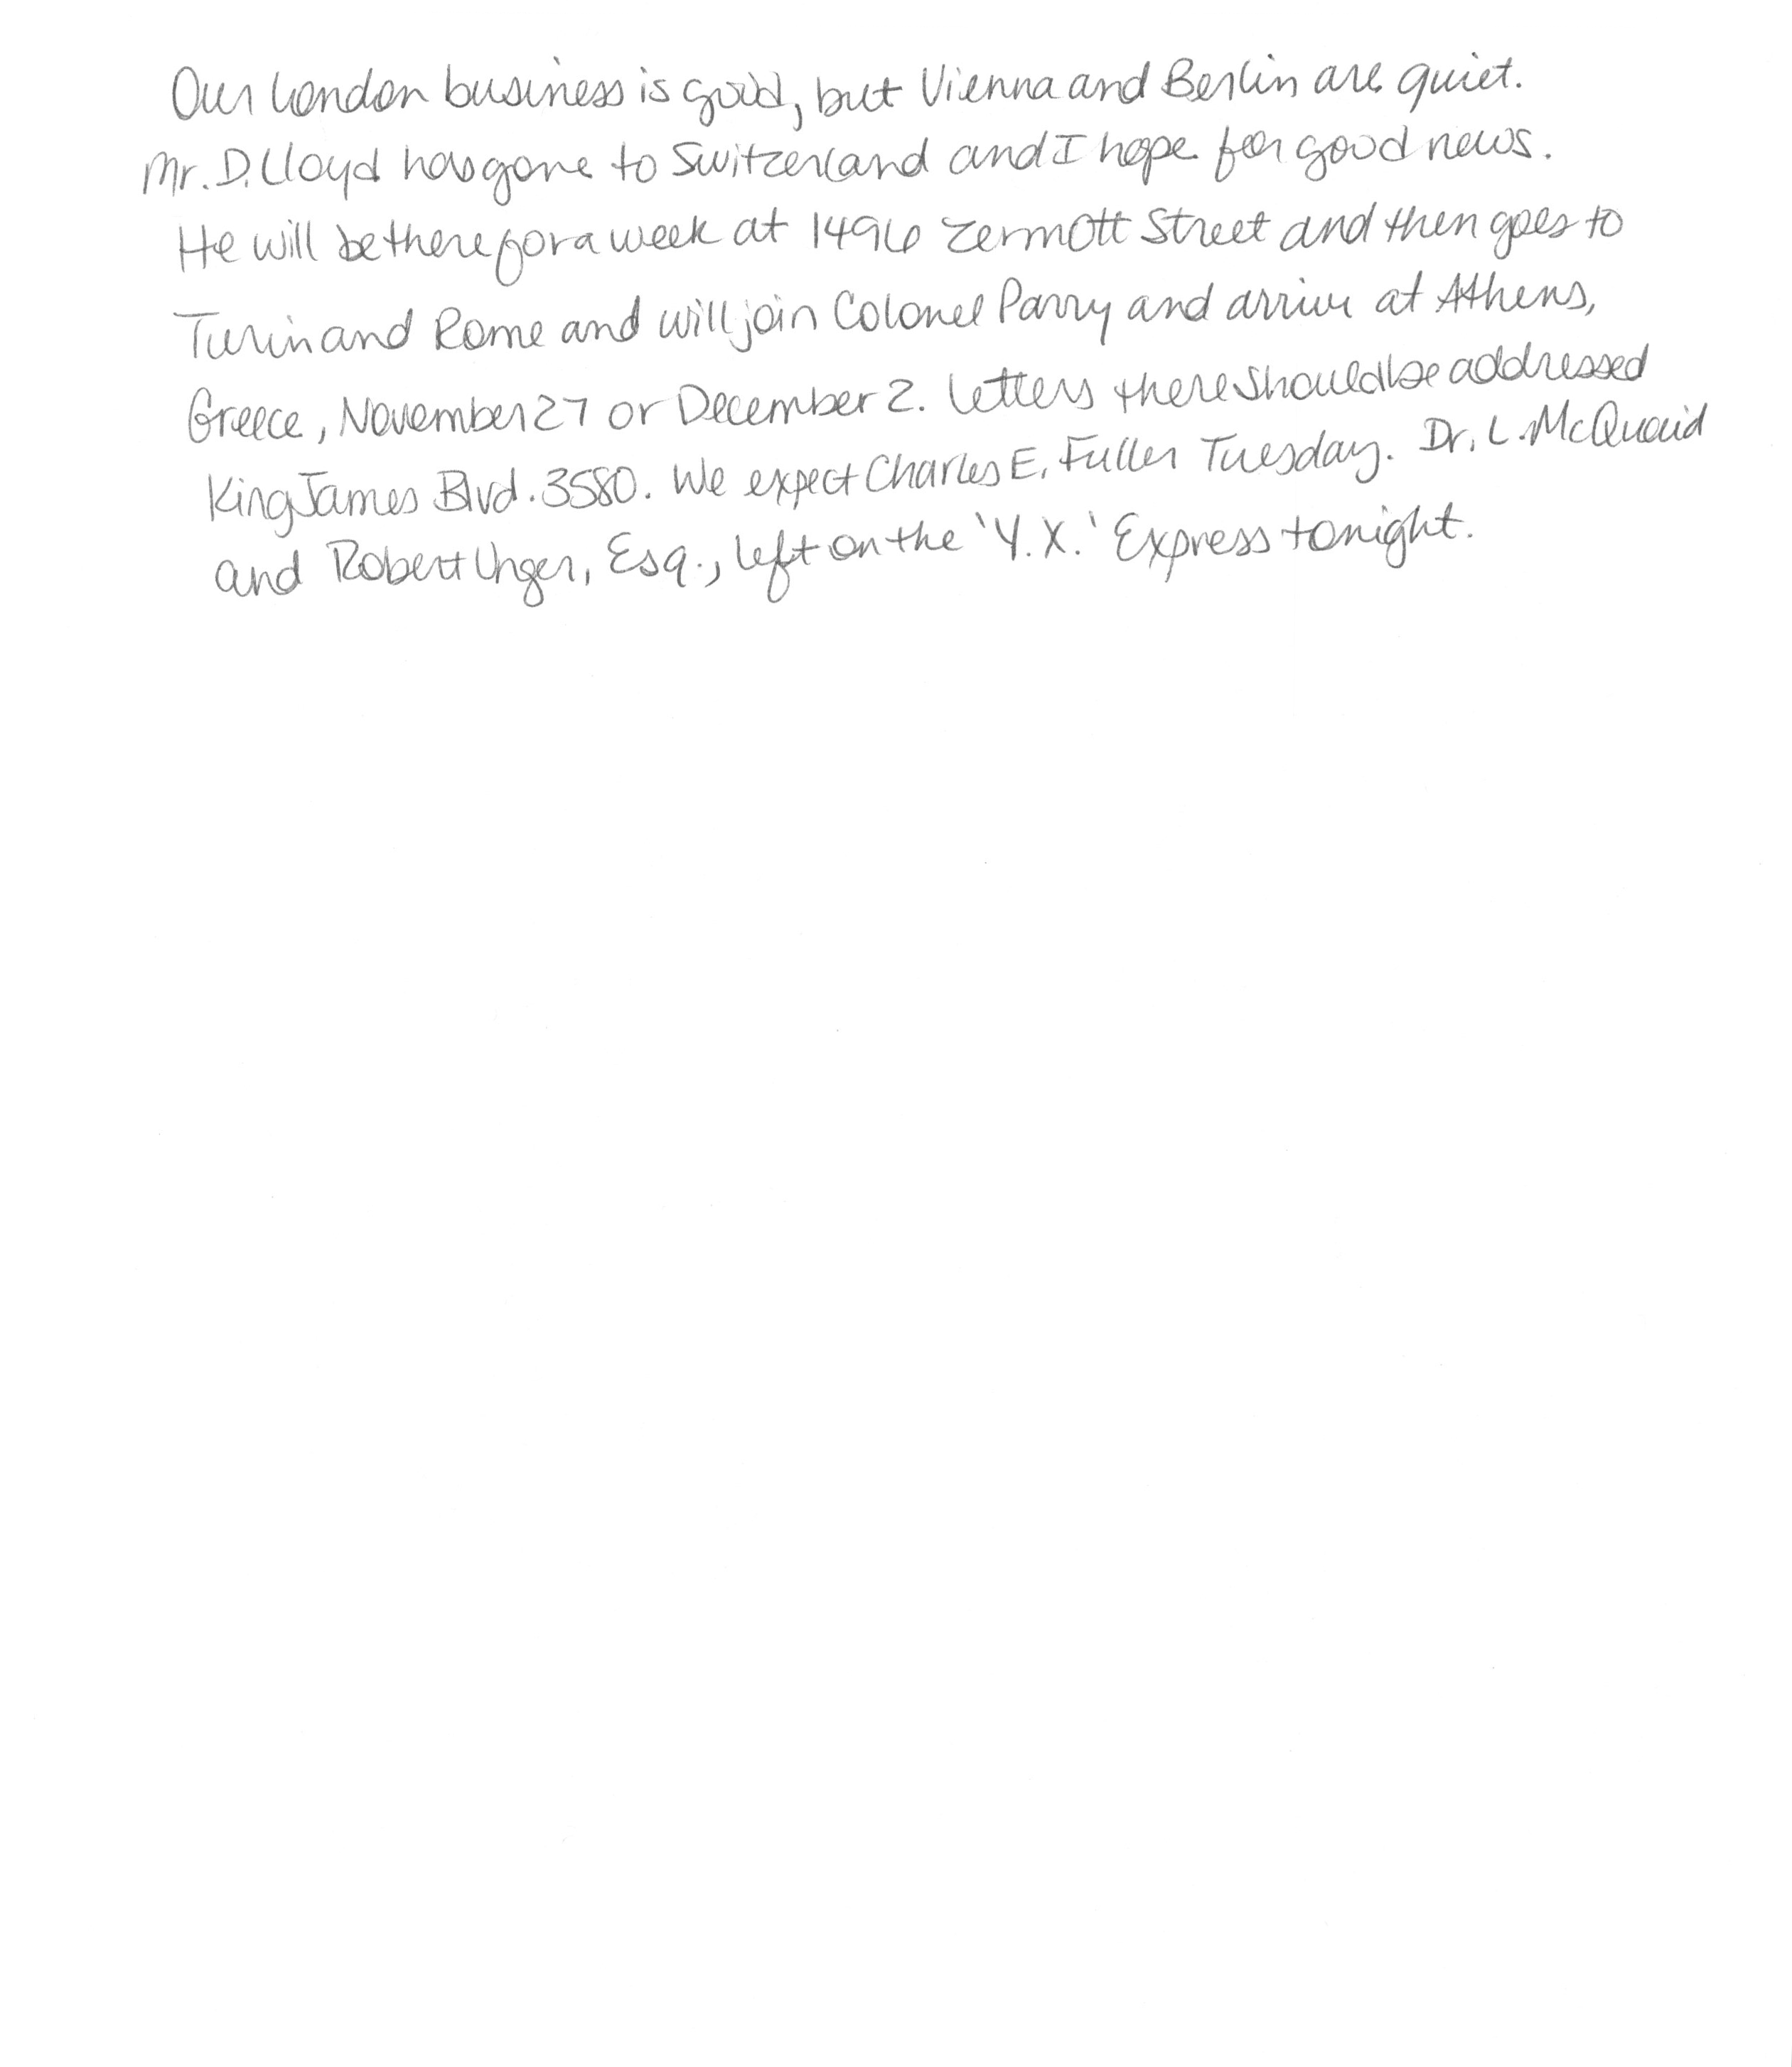 Our London business is good, but Vienna and Berlin are quiet.
Mr. D. Lloyd has gone to Switzerland and I hope for good news.
He will be there for a week at 1496 Zermott Street and then goes to
Turin and Rome and will join Colonel Parry and arrive at Athens,
Greece, November 27 or December 2. Letters there should be addressed
King James Blvd. 3580. We expect Charles E. Fuller Tuesday. Dr. L. McQuaid
and Robert Unger, Esq., left on the 'Y.X.' Express tonight.